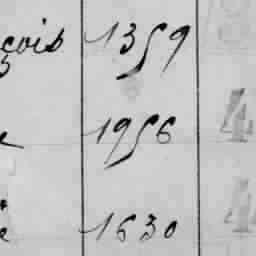 çois 1359
e 1956
e 1630